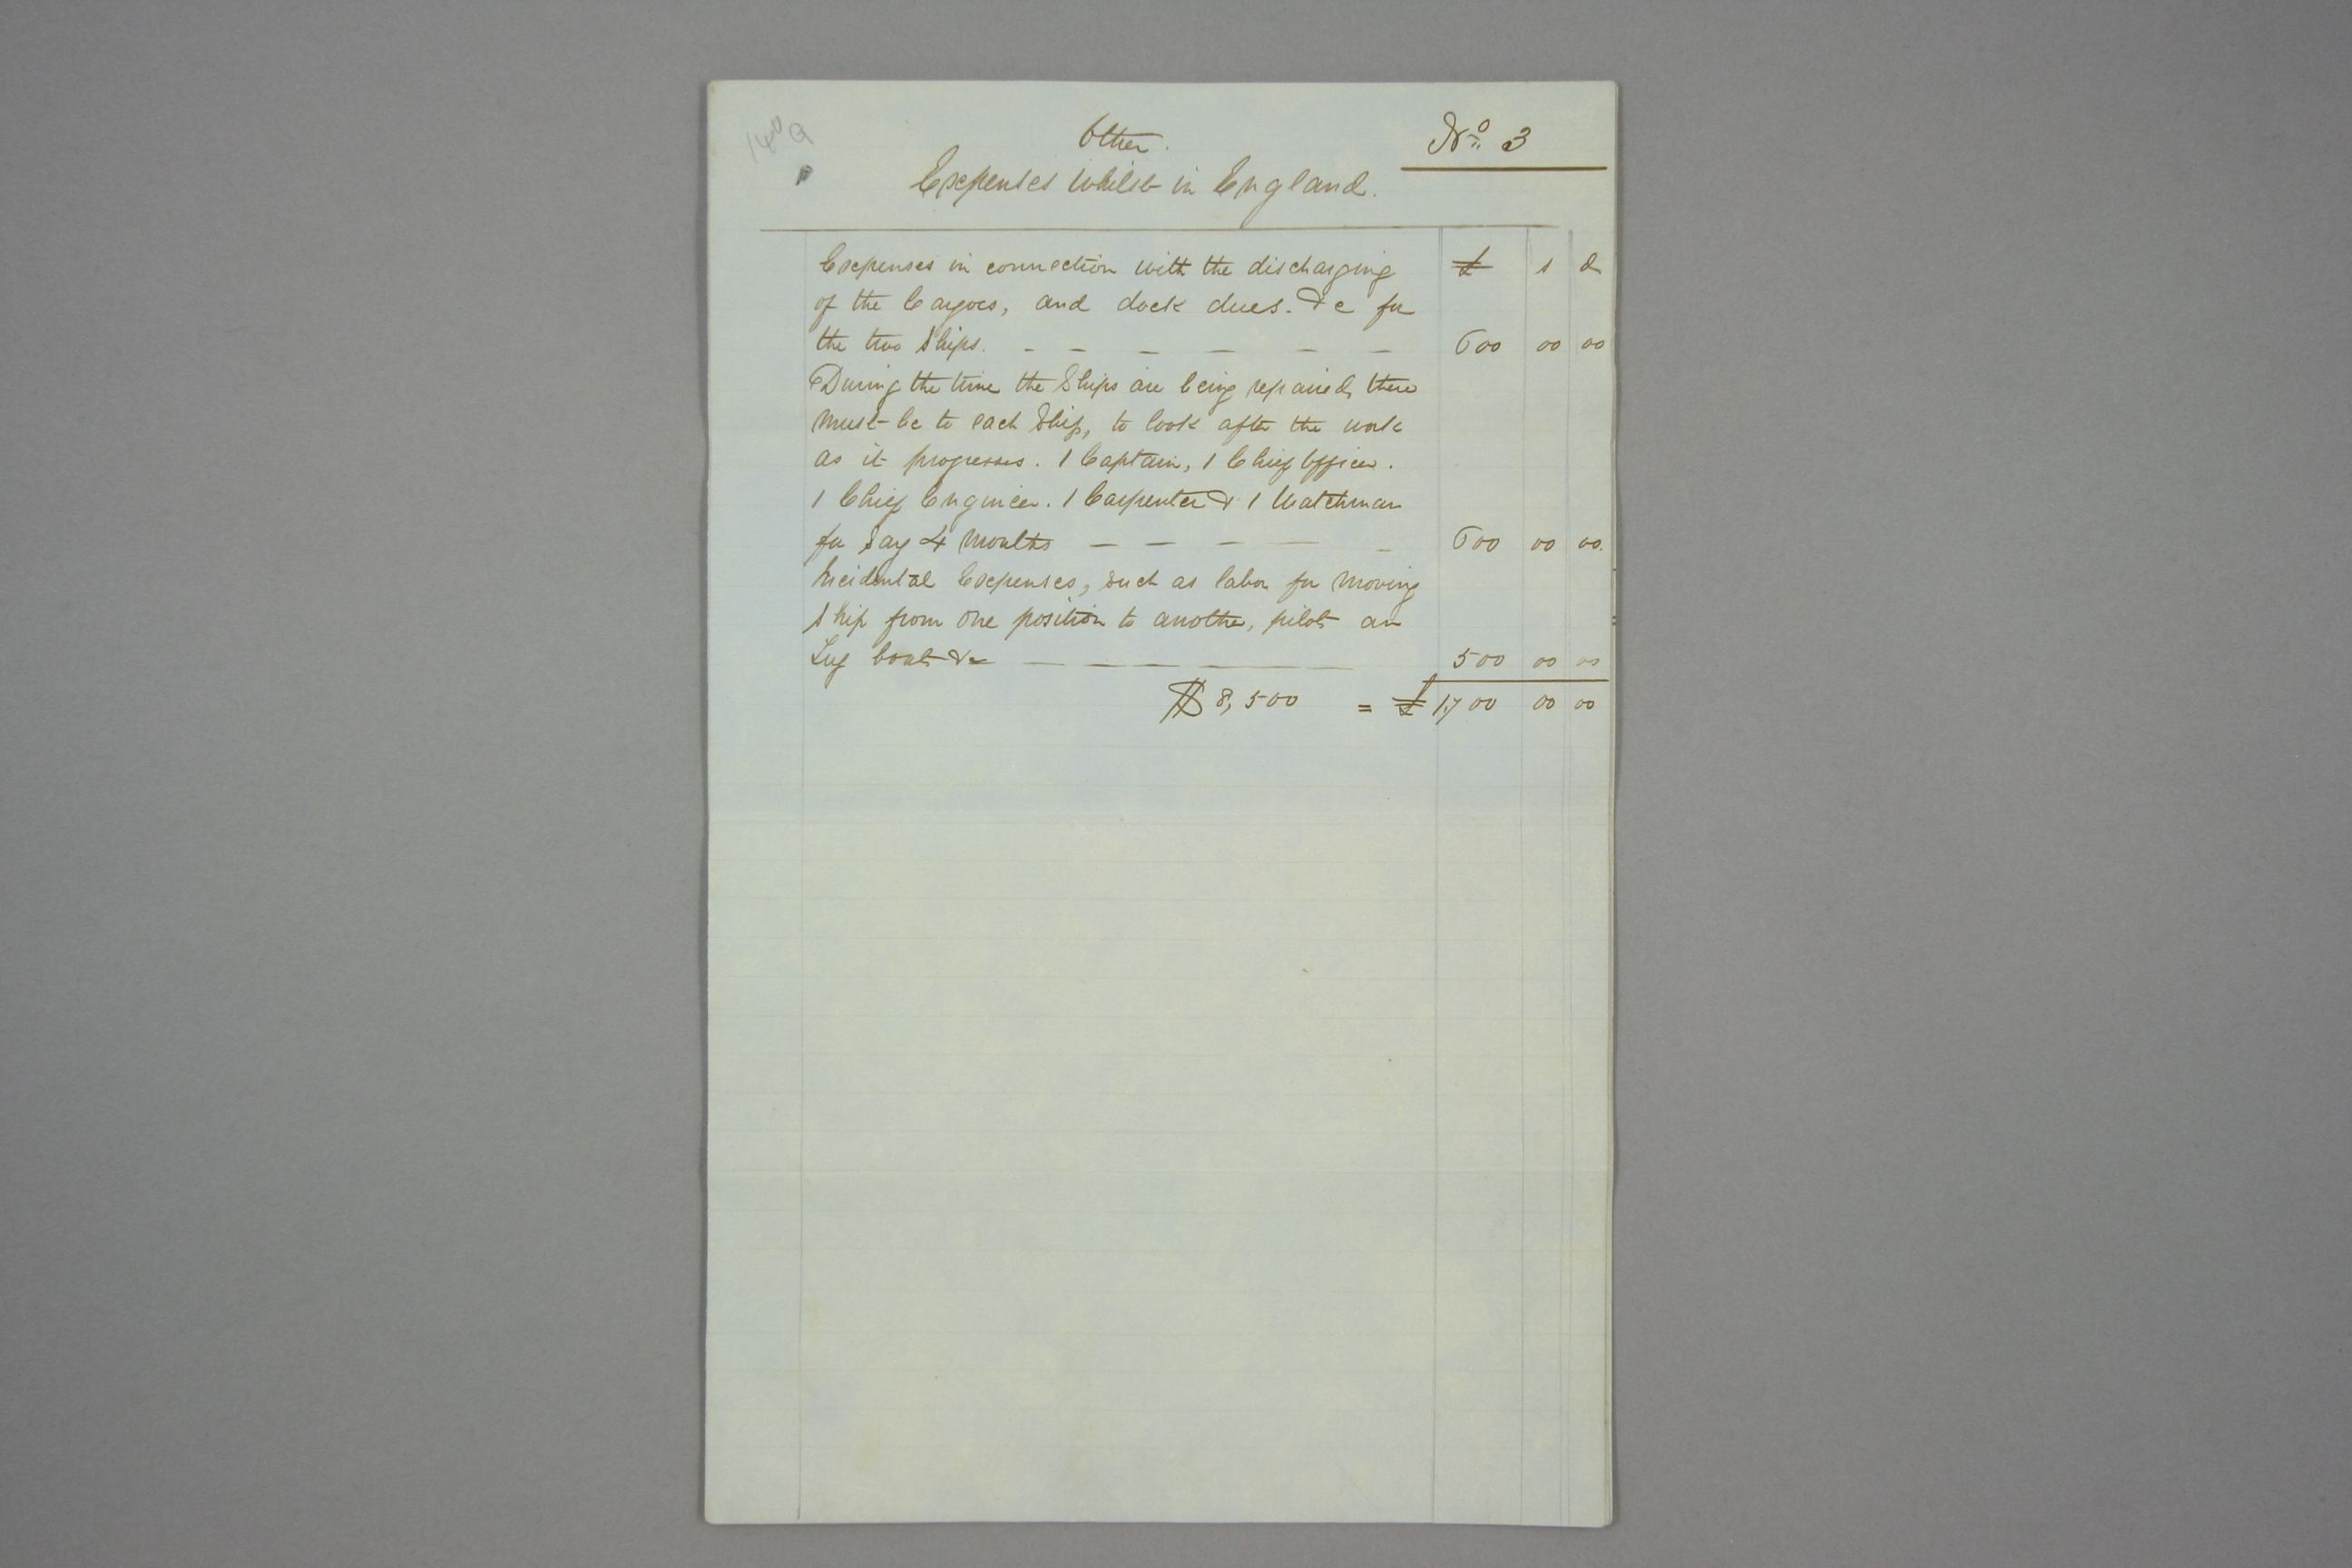 Other.
No. 3
Expenses whilst in England.
Expenses in connection with the discharging £ s d
of the Cargoes, and dock dues. &c for
the two Ships. - - - - - - 600 00 00
During the time the Ships are being repaired, there
must be to each Ship, to look after the work
as it progresses. 1 Captain, 1 Chief Officer.
1 Chief Engineer. 1 Carpenter & 1 Watchman
for say 4 Months - - - - - 600 00 00.
Incidental Expenses, such as labor for moving
Ship from one position to another, pilots an
Tug boats &c - - - - - - 500 00 00
$ 8,500 = £ 1,700 00 00